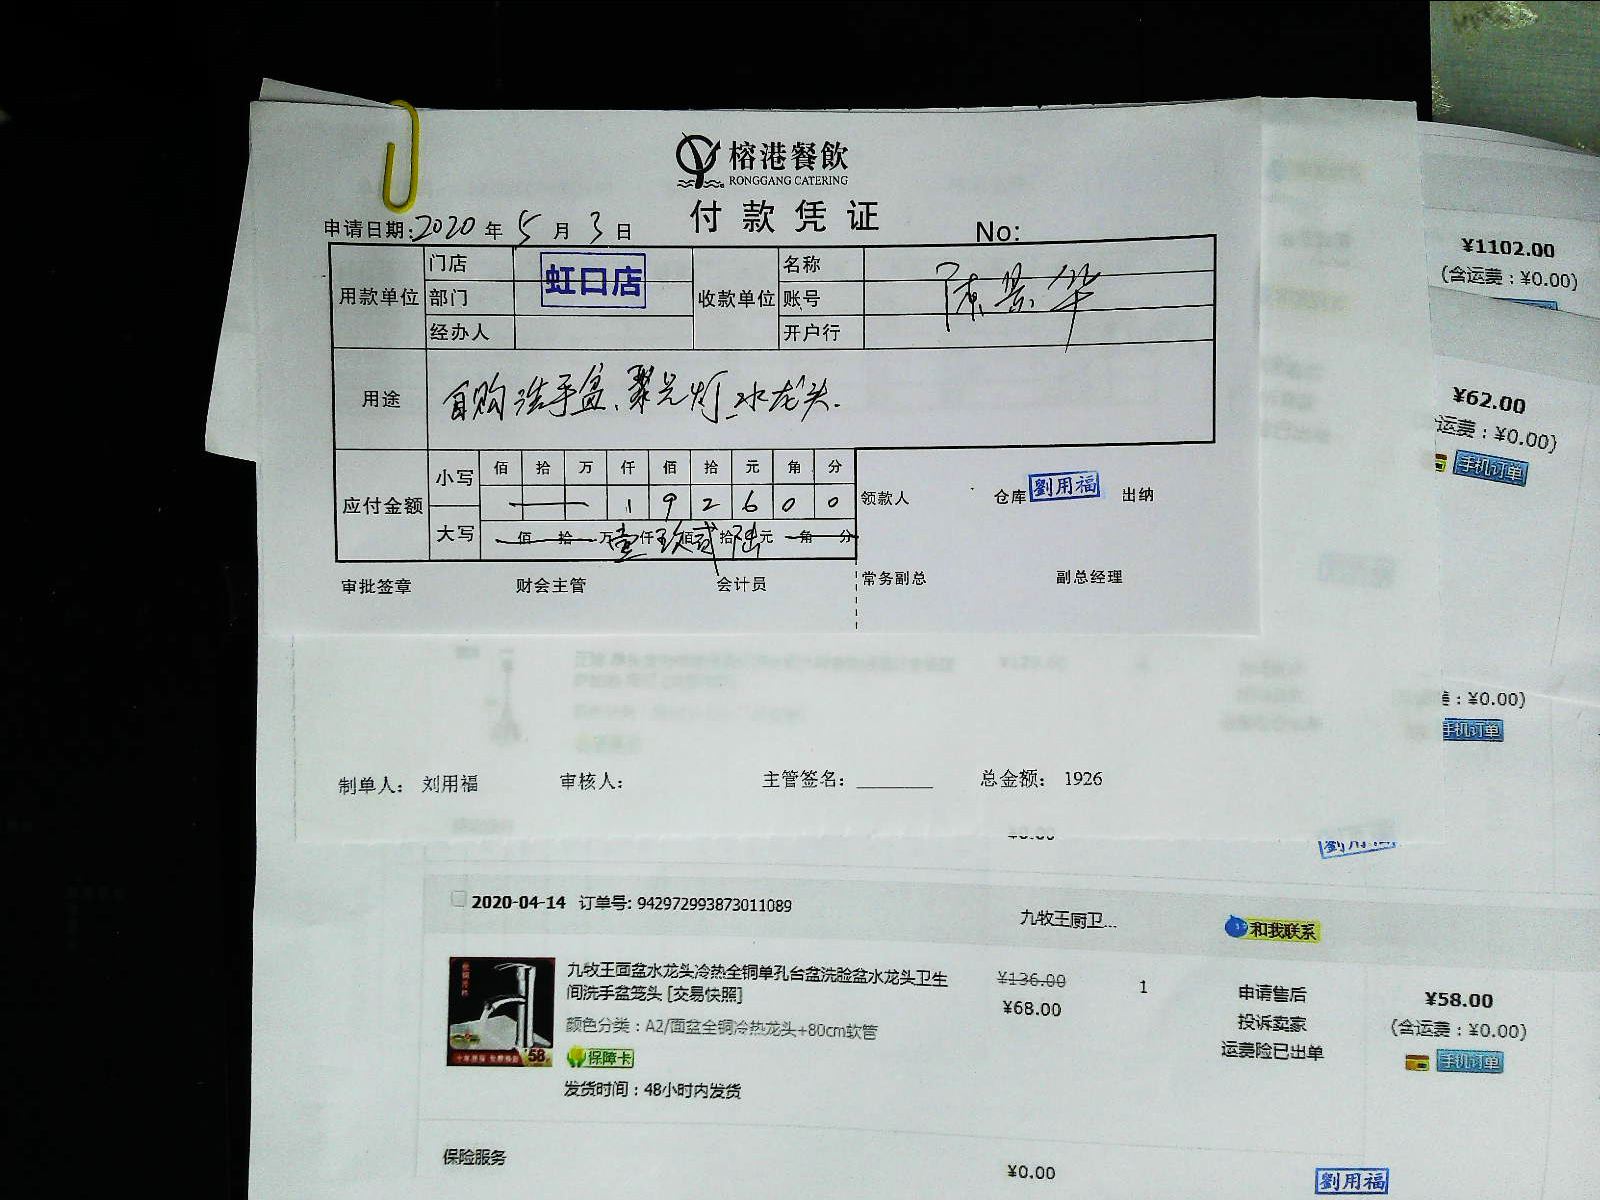 榕港餐飲
RONGGANG CATERING
付款凭证
申请日期:2020年5月3日 No:
用款单位 门店 虹口店 收款单位 名称 陈景华
部门 账号
经办人 开户行
用途 自购洗手盆、聚光灯、水龙头.
应付金额 小写 佰 拾 万 仟 佰 拾 元 角 分
1 9 2 6 0 0
大写 佰 拾 万壹仟玖佰弍拾陆元 角 分
领款人 仓库 劉用福 出纳
审批签章 财会主管 会计员 常务副总 副总经理
¥1102.00
(含运费:¥0.00)
¥62.00
运费:¥0.00)
手机订单
:¥0.00)
手机订单
制单人: 刘用福 审核人: 主管签名: 总金额: 1926
¥0.00
劉用福
2020-04-14 订单号: 942972993873011089 九牧王厨卫... 和我联系
九牧王面盆水龙头冷热全铜单孔台盆洗脸盆水龙头卫生
间洗手盆笼头 [交易快照]
颜色分类:A2/面盆全铜冷热龙头+80cm软管
保障卡
发货时间:48小时内发货
¥136.00
¥68.00
1
申请售后
投诉卖家
运费险已出单
¥58.00
(含运费:¥0.00)
手机订单
58
保险服务 ¥0.00
劉用福